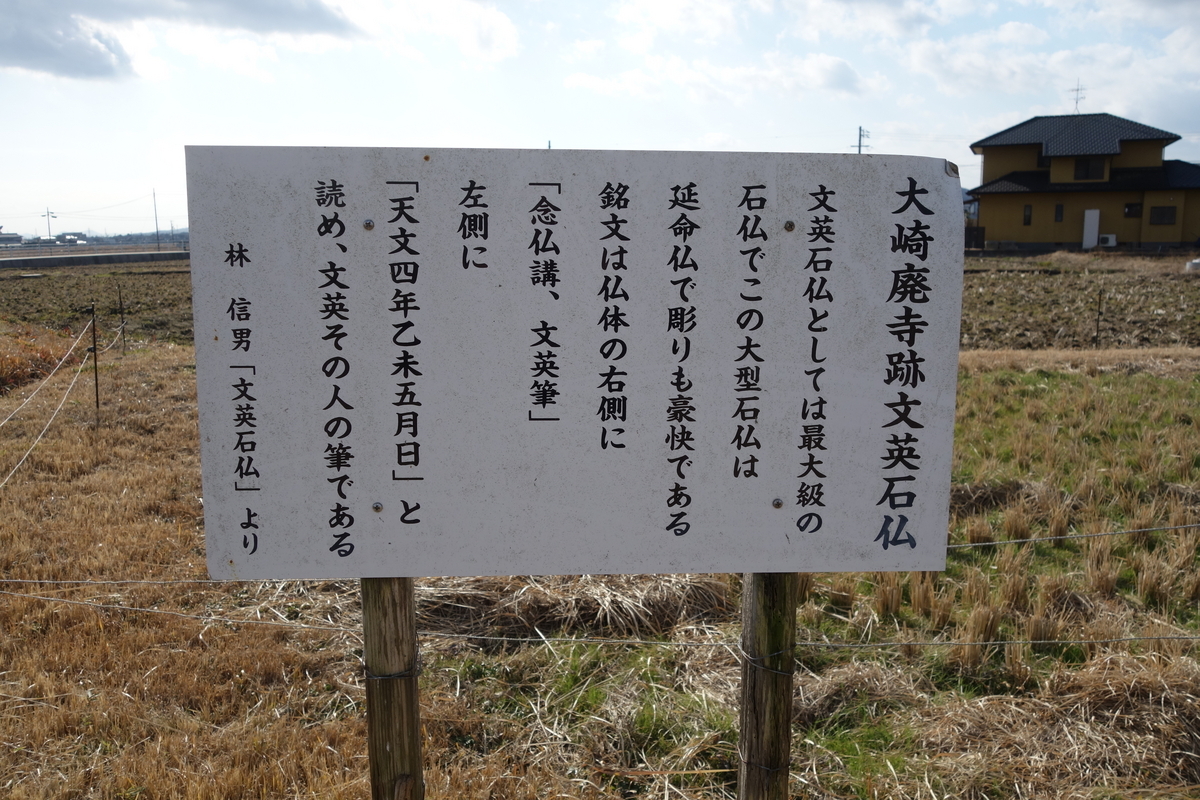 大崎廃寺跡文英石仏
文英石仏としては最大級の
石仏でこの大型石仏は
延命仏で彫りも豪快である
銘文は仏体の右側に
「念仏講、文英筆」
左側に
「天文四年乙未五月日」と
読め、文英その人の筆である
林 信男「文英石仏」より